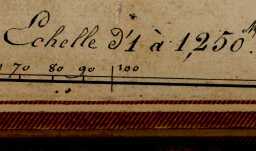 Echelle d'1 à 1,250.
70 80 90 100